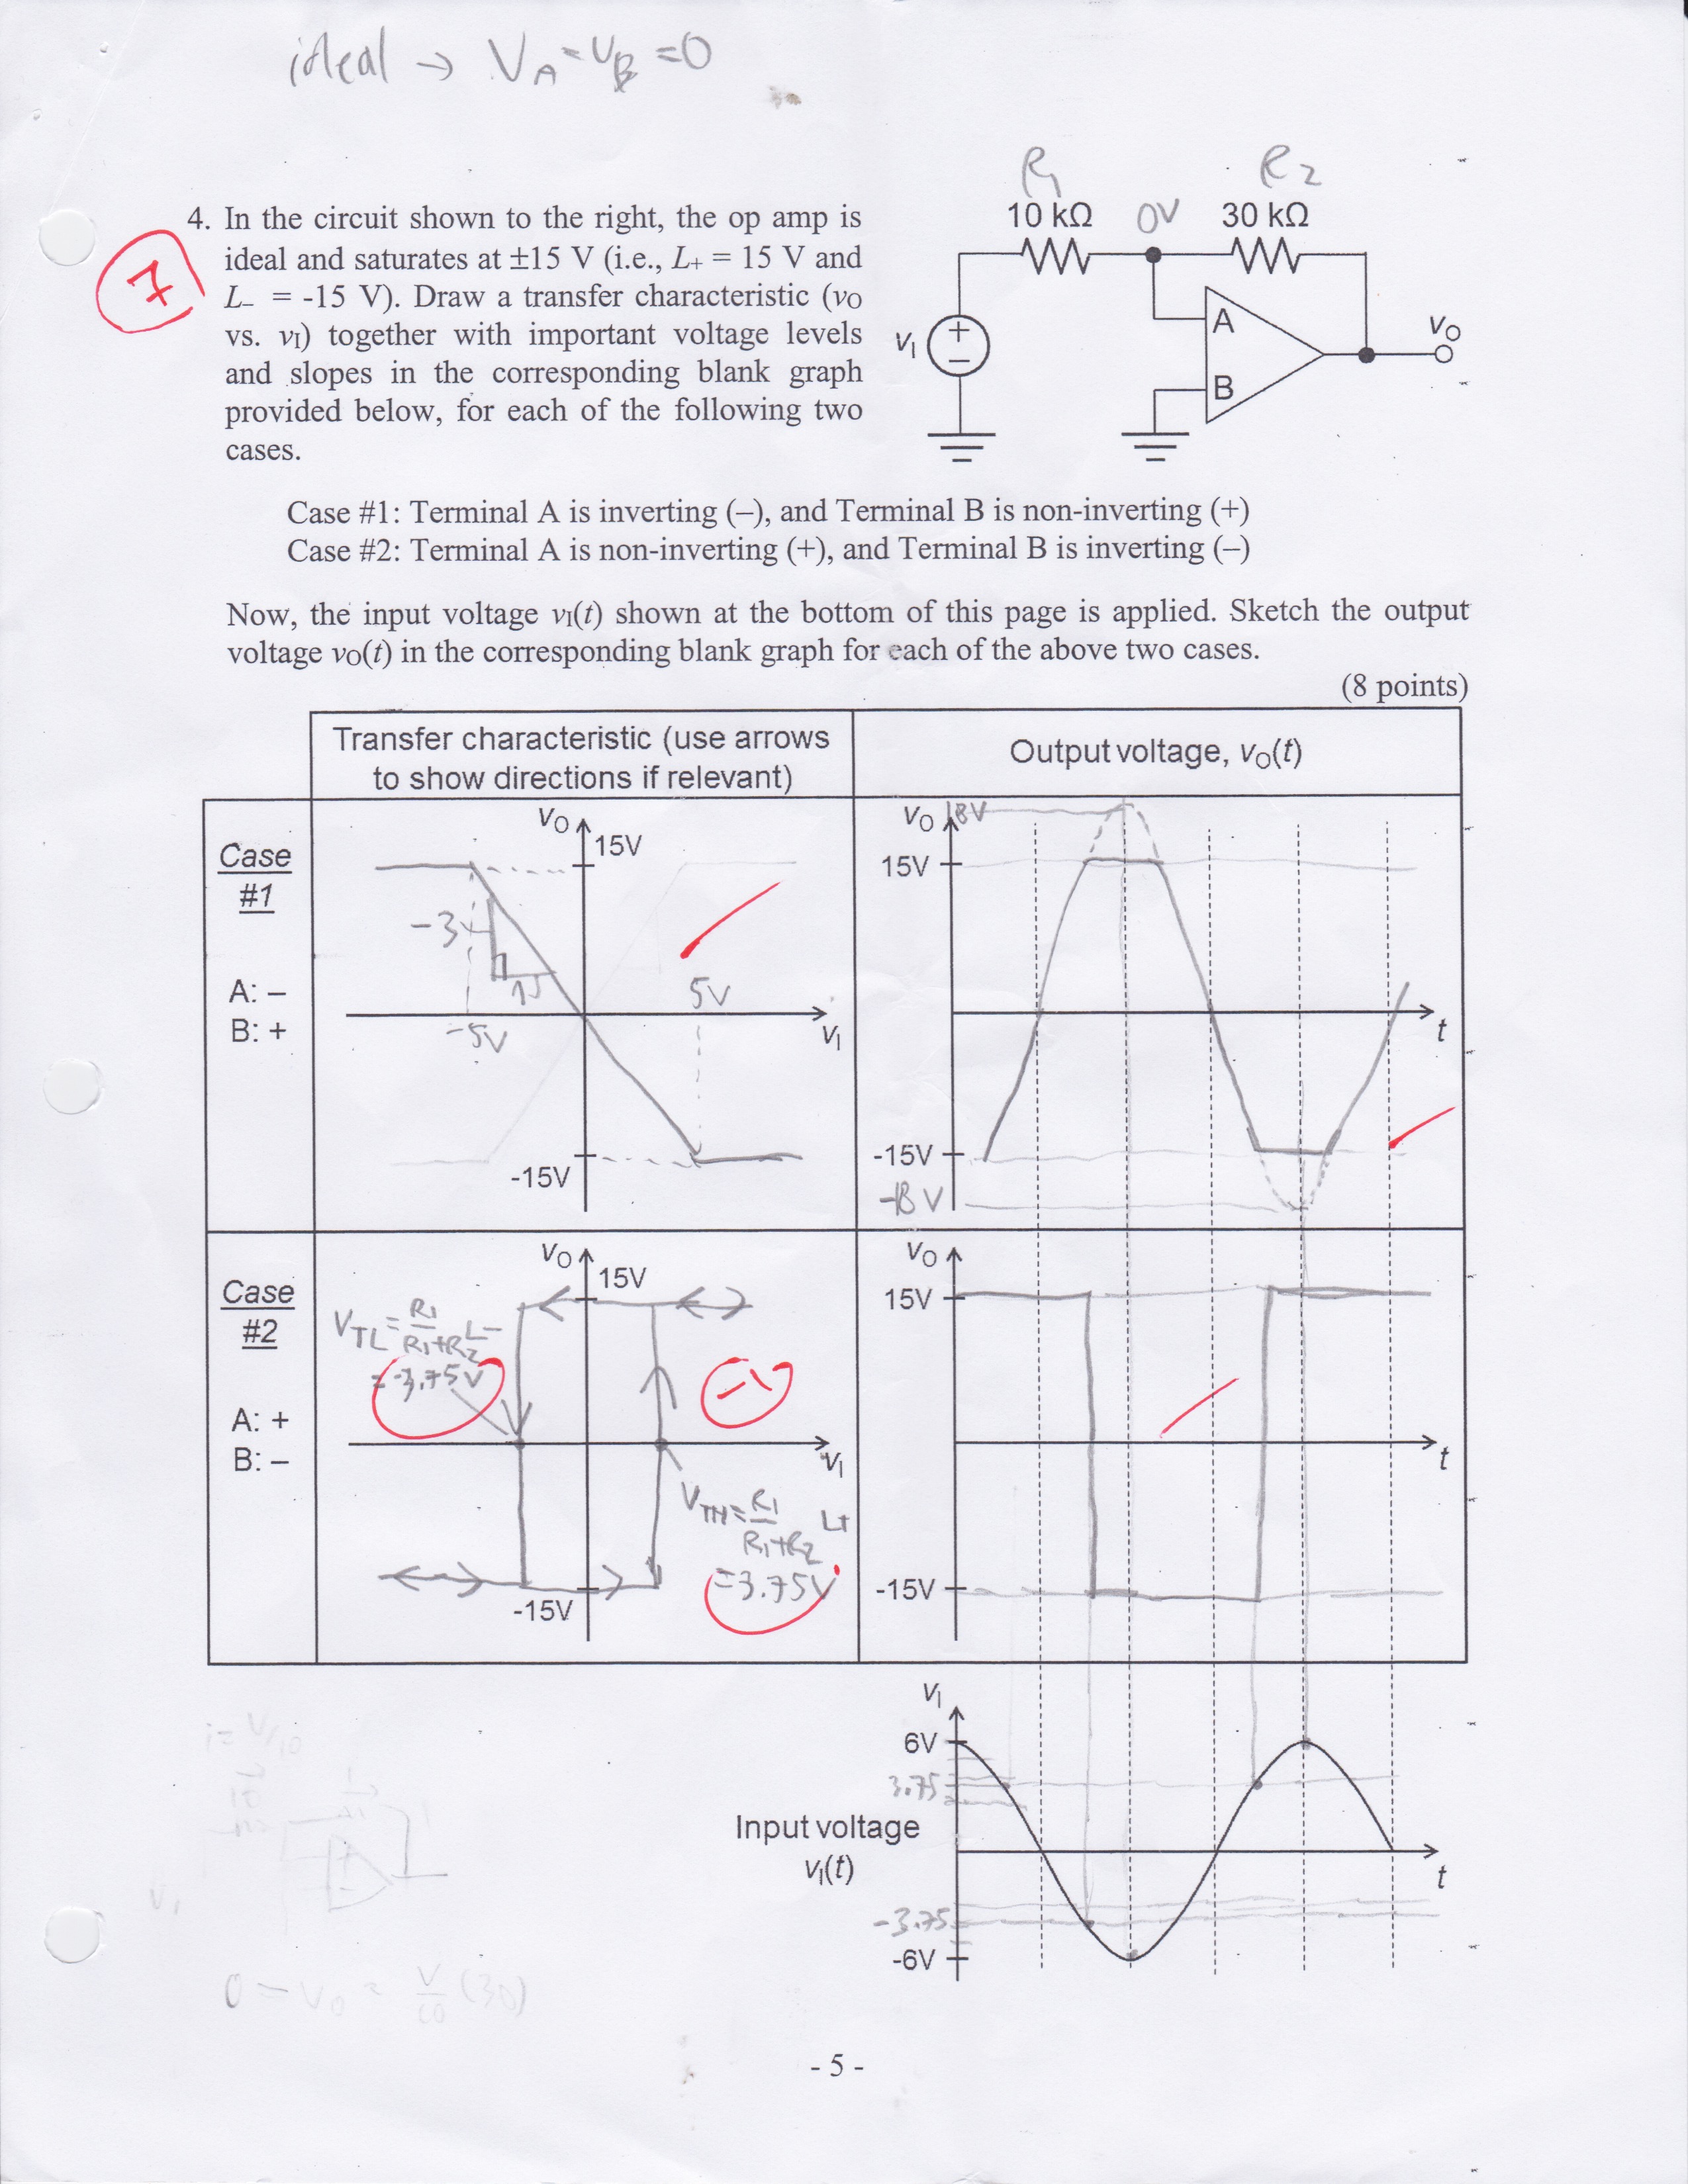 ideal → VA = VB = 0
R1
R2
10 kΩ
0V
30 kΩ
A
B
vI
+
−
vO
7
4. In the circuit shown to the right, the op amp is
ideal and saturates at ±15 V (i.e., L+ = 15 V and
L− = -15 V). Draw a transfer characteristic (vO
vs. vI) together with important voltage levels
and slopes in the corresponding blank graph
provided below, for each of the following two
cases.
Case #1: Terminal A is inverting (–), and Terminal B is non-inverting (+)
Case #2: Terminal A is non-inverting (+), and Terminal B is inverting (–)
Now, the input voltage vI(t) shown at the bottom of this page is applied. Sketch the output
voltage vO(t) in the corresponding blank graph for each of the above two cases.
(8 points)
Transfer characteristic (use arrows
to show directions if relevant)
Output voltage, vO(t)
Case
#1
A: –
B: +
vO
15V
-3
1
5V
-5V
vI
-15V
vO
18V
15V
t
-15V
-18 V
Case
#2
A: +
B: –
vO
15V
VTL = R1/(R1+R2) L−
= -3.75V
-1
vI
VTH = R1/(R1+R2) L+
= 3.75V
-15V
vO
15V
t
-15V
vI
6V
3.75
Input voltage
vI(t)
t
-3.75
-6V
i = V/10
0 − Vo = V/10 (30)
- 5 -